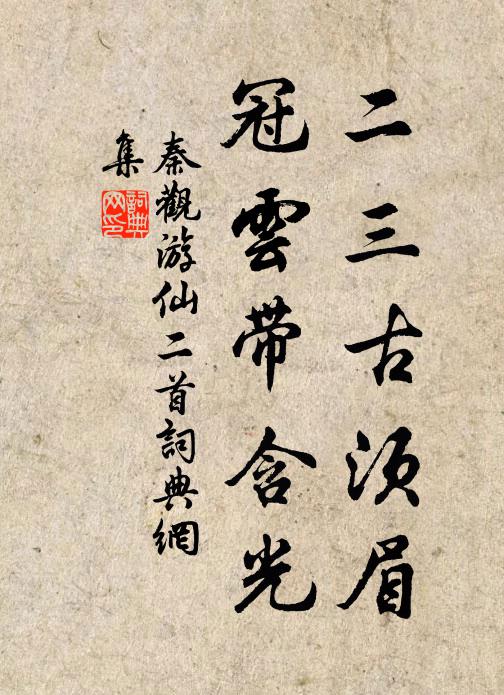 二三古须眉
冠雲带含光
秦觀游仙二首詞典網
集
詞典网印